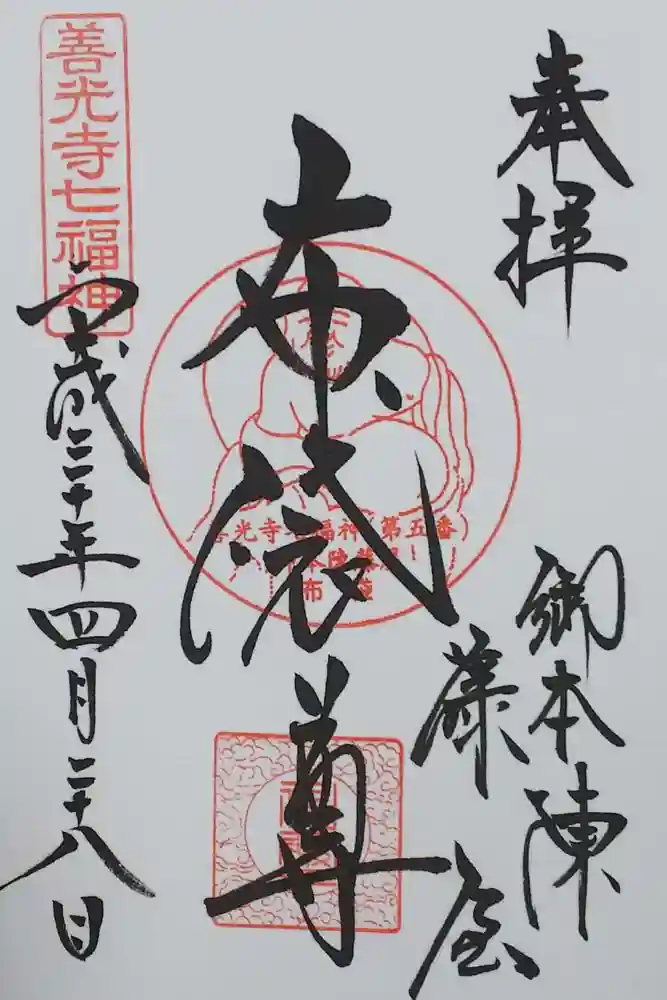 奉拝
御本陳
藤屋
布袋尊
善光寺七福神
平成二十年四月二十八日
光寺七福神(第五番)
布